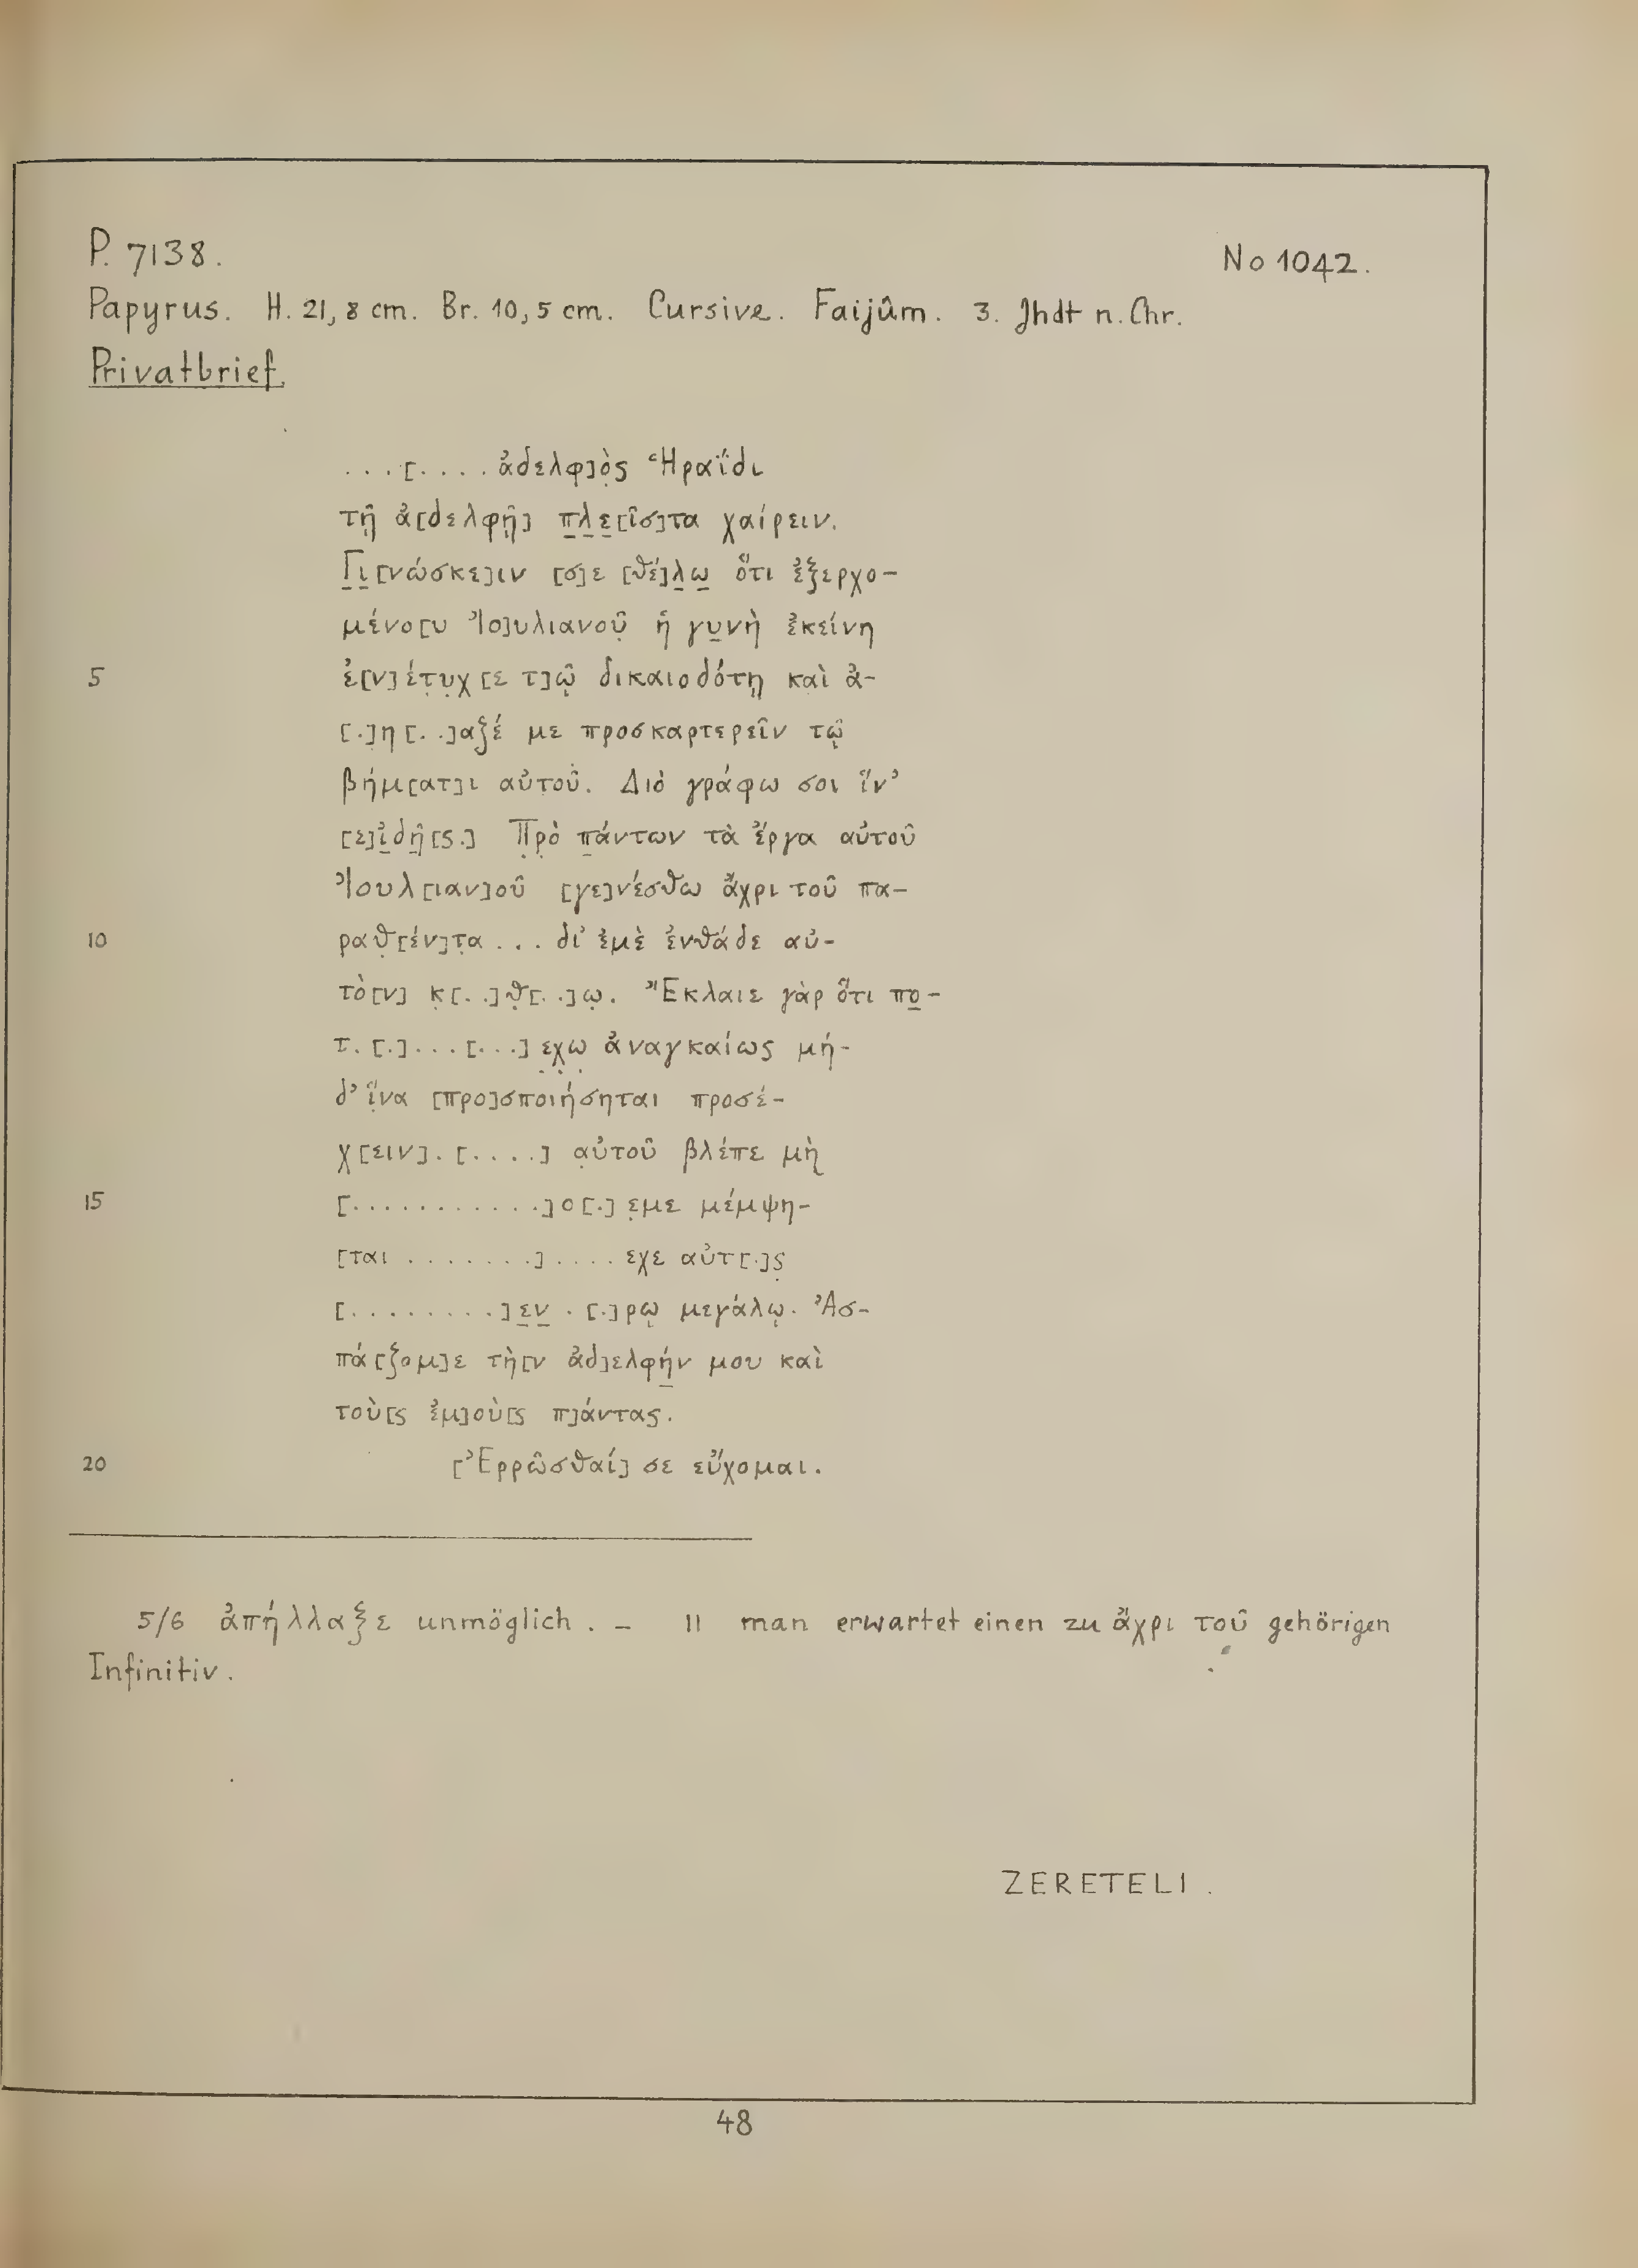 P. 7138.
No 1042.
Papyrus. H. 21,8 cm. Br. 10,5 cm. Cursive. Faijûm. 3. Jhdt n. Chr.
Privatbrief.
...[.... ἀδελφ]ὸ̣ς Ἡραΐδι
τῇ ἀ[δελφῇ] π̲λ̲ε̲[ῖσ]τα χαίρειν.
Γ̲ι̲[νώσκε]ιν [σ]ε [θέ]λ̲ω̲ ὅτι ἐξερχο-
μένο[υ Ἰο]υλιανοῦ̣ ἡ γυ̲νὴ ἐκείνη
5 ἐ[ν]έτ̣υ̣χ[ε τ]ῷ δικαιοδότῃ καὶ ἀ-
[.]η[..]αξέ με προσκαρτερεῖν τῷ
βήμ[ατ]ι αὐτοῦ. Διὸ γράφω σοι ἵν'
[ε]ἰ̲δῇ̲[ς.] Π̣ρ̣ὸ π̲άντων τὰ ἔργα αὐτοῦ
Ἰουλ[ιαν]οῦ [γε]νέσθω ἄχρι τοῦ πα-
10 ραθ̣[έν]τ̣α ... δι' ἐμὲ ἐνθάδε αὐ-
τὸ[ν] κ̣[..]θ̣[..]ω̣. Ἔκλαιε γὰρ ὅτι πο̲-
τ.[.]...[...]ε̣χ̣ω̣ ἀναγκαίως μή-
δ' ἵ̣να [προ]σποιήσηται προσέ-
χ[ειν]. [....] α̣ὐτοῦ βλέπε μὴ
15 [...........]ο[.] ε̣με μέμψη-
[ται .......]....εχε αὐτ[.]ς̣
[........]ε̲ν̲.[.]ρῳ μεγάλῳ. Ἀσ-
πά[ζομ]ε τὴ[ν ἀδ]ελφή̲ν μου καὶ
τοὺ[ς ἐμ]οὺ[ς π]άντας.
20 [Ἐρρῶσθαί] σε εὔχομαι.
5/6 ἀπήλλαξε unmöglich. – 11 man erwartet einen zu ἄχρι τοῦ gehörigen
Infinitiv.
ZERETELI.
48